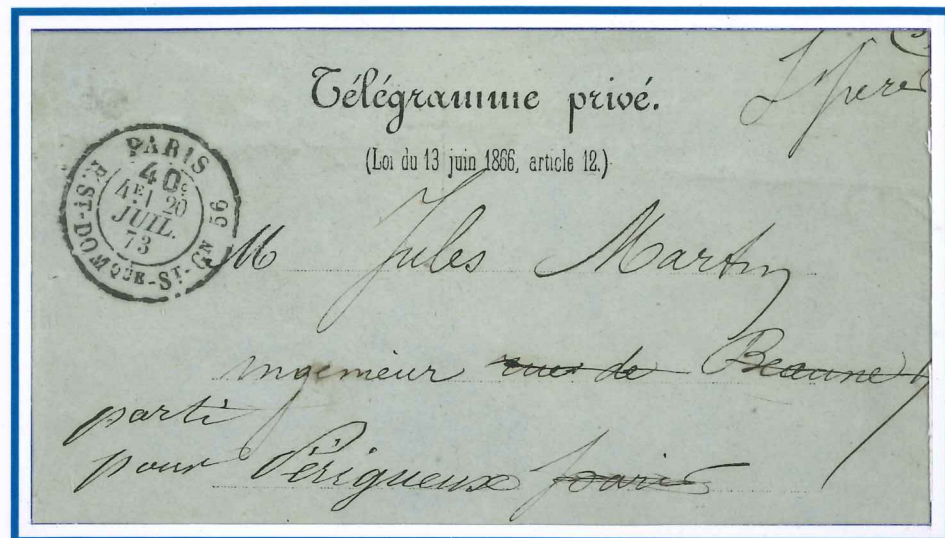 Télégramme privé.
(Loi du 13 juin 1866, article 12.)
PARIS
4E/ 20
JUIL.
73
R. ST-DOMQUE-ST-GN 56
M Jules Martin
ingenieur rue de Beaune
parti
pour Périgueux paris